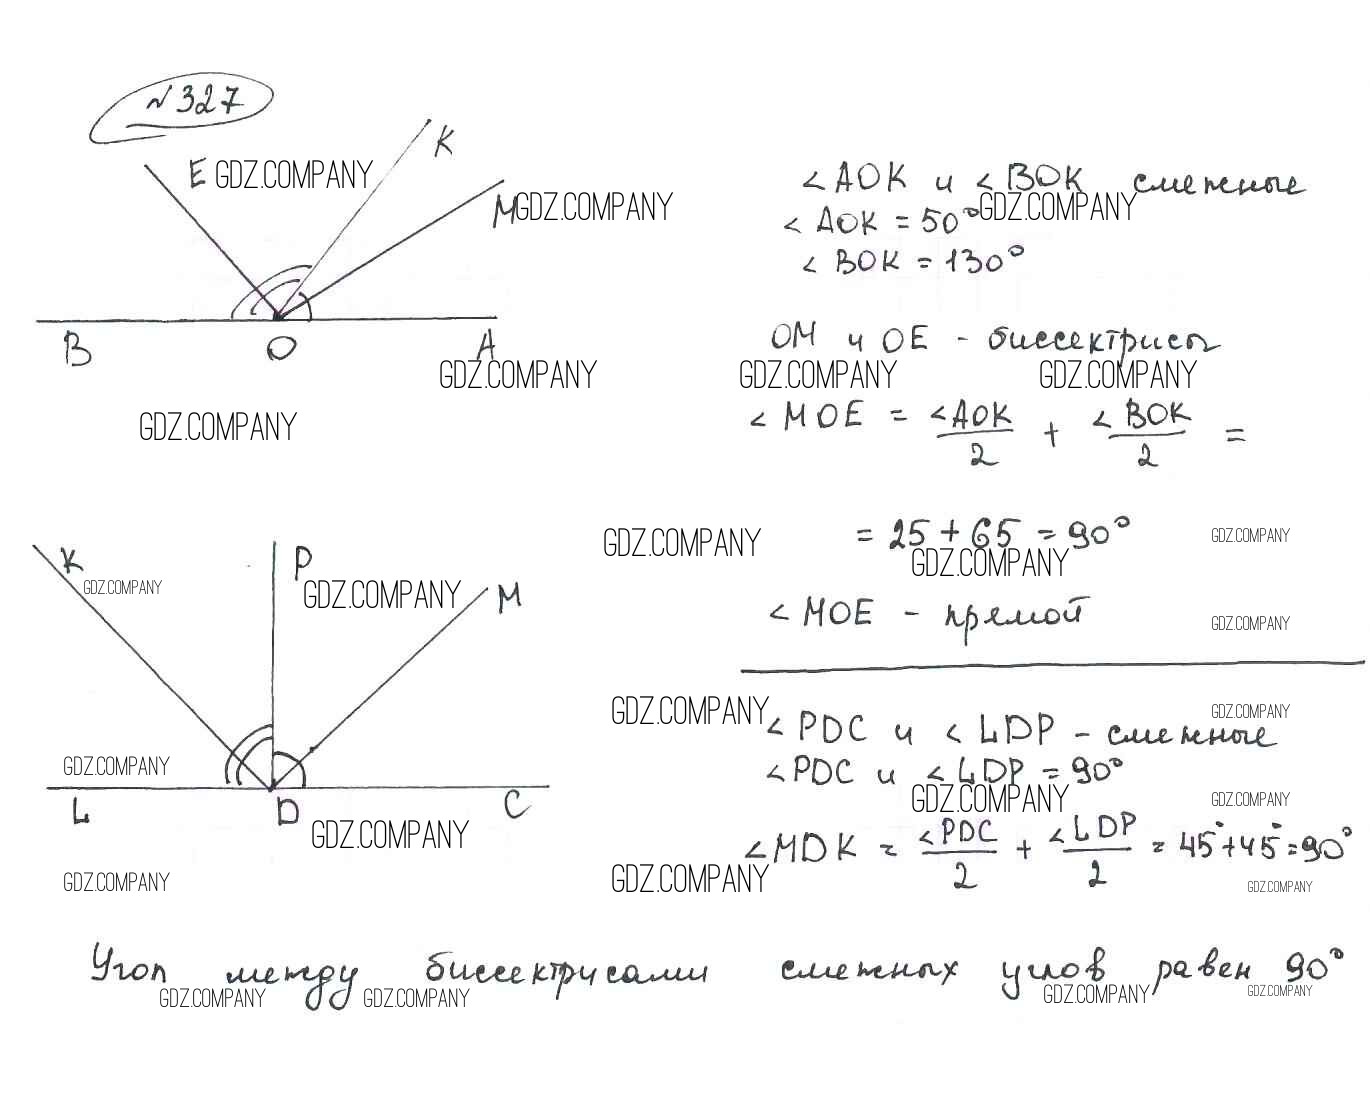 №327
E GDZ.COMPANY
K
M GDZ.COMPANY
B O A
GDZ.COMPANY
GDZ.COMPANY
∠AOK и ∠BOK смежные
GDZ.COMPANY
∠AOK = 50°
∠BOK = 130°
OM и OE - биссектрисы
GDZ.COMPANY GDZ.COMPANY
∠MOE = ∠AOK/2 + ∠BOK/2 =
GDZ.COMPANY
= 25 + 65 = 90°
GDZ.COMPANY
GDZ.COMPANY
∠MOE - прямой
GDZ.COMPANY
K P M
GDZ.COMPANY GDZ.COMPANY
GDZ.COMPANY
L D C
GDZ.COMPANY
GDZ.COMPANY
GDZ.COMPANY
GDZ.COMPANY
∠PDC и ∠LDP - смежные
∠PDC и ∠LDP = 90°
GDZ.COMPANY
GDZ.COMPANY
∠MDK = ∠PDC/2 + ∠LDP/2 = 45°+45°=90°
GDZ.COMPANY
GDZ.COMPANY
Угол между биссектрисами смежных углов равен 90°
GDZ.COMPANY GDZ.COMPANY GDZ.COMPANY GDZ.COMPANY